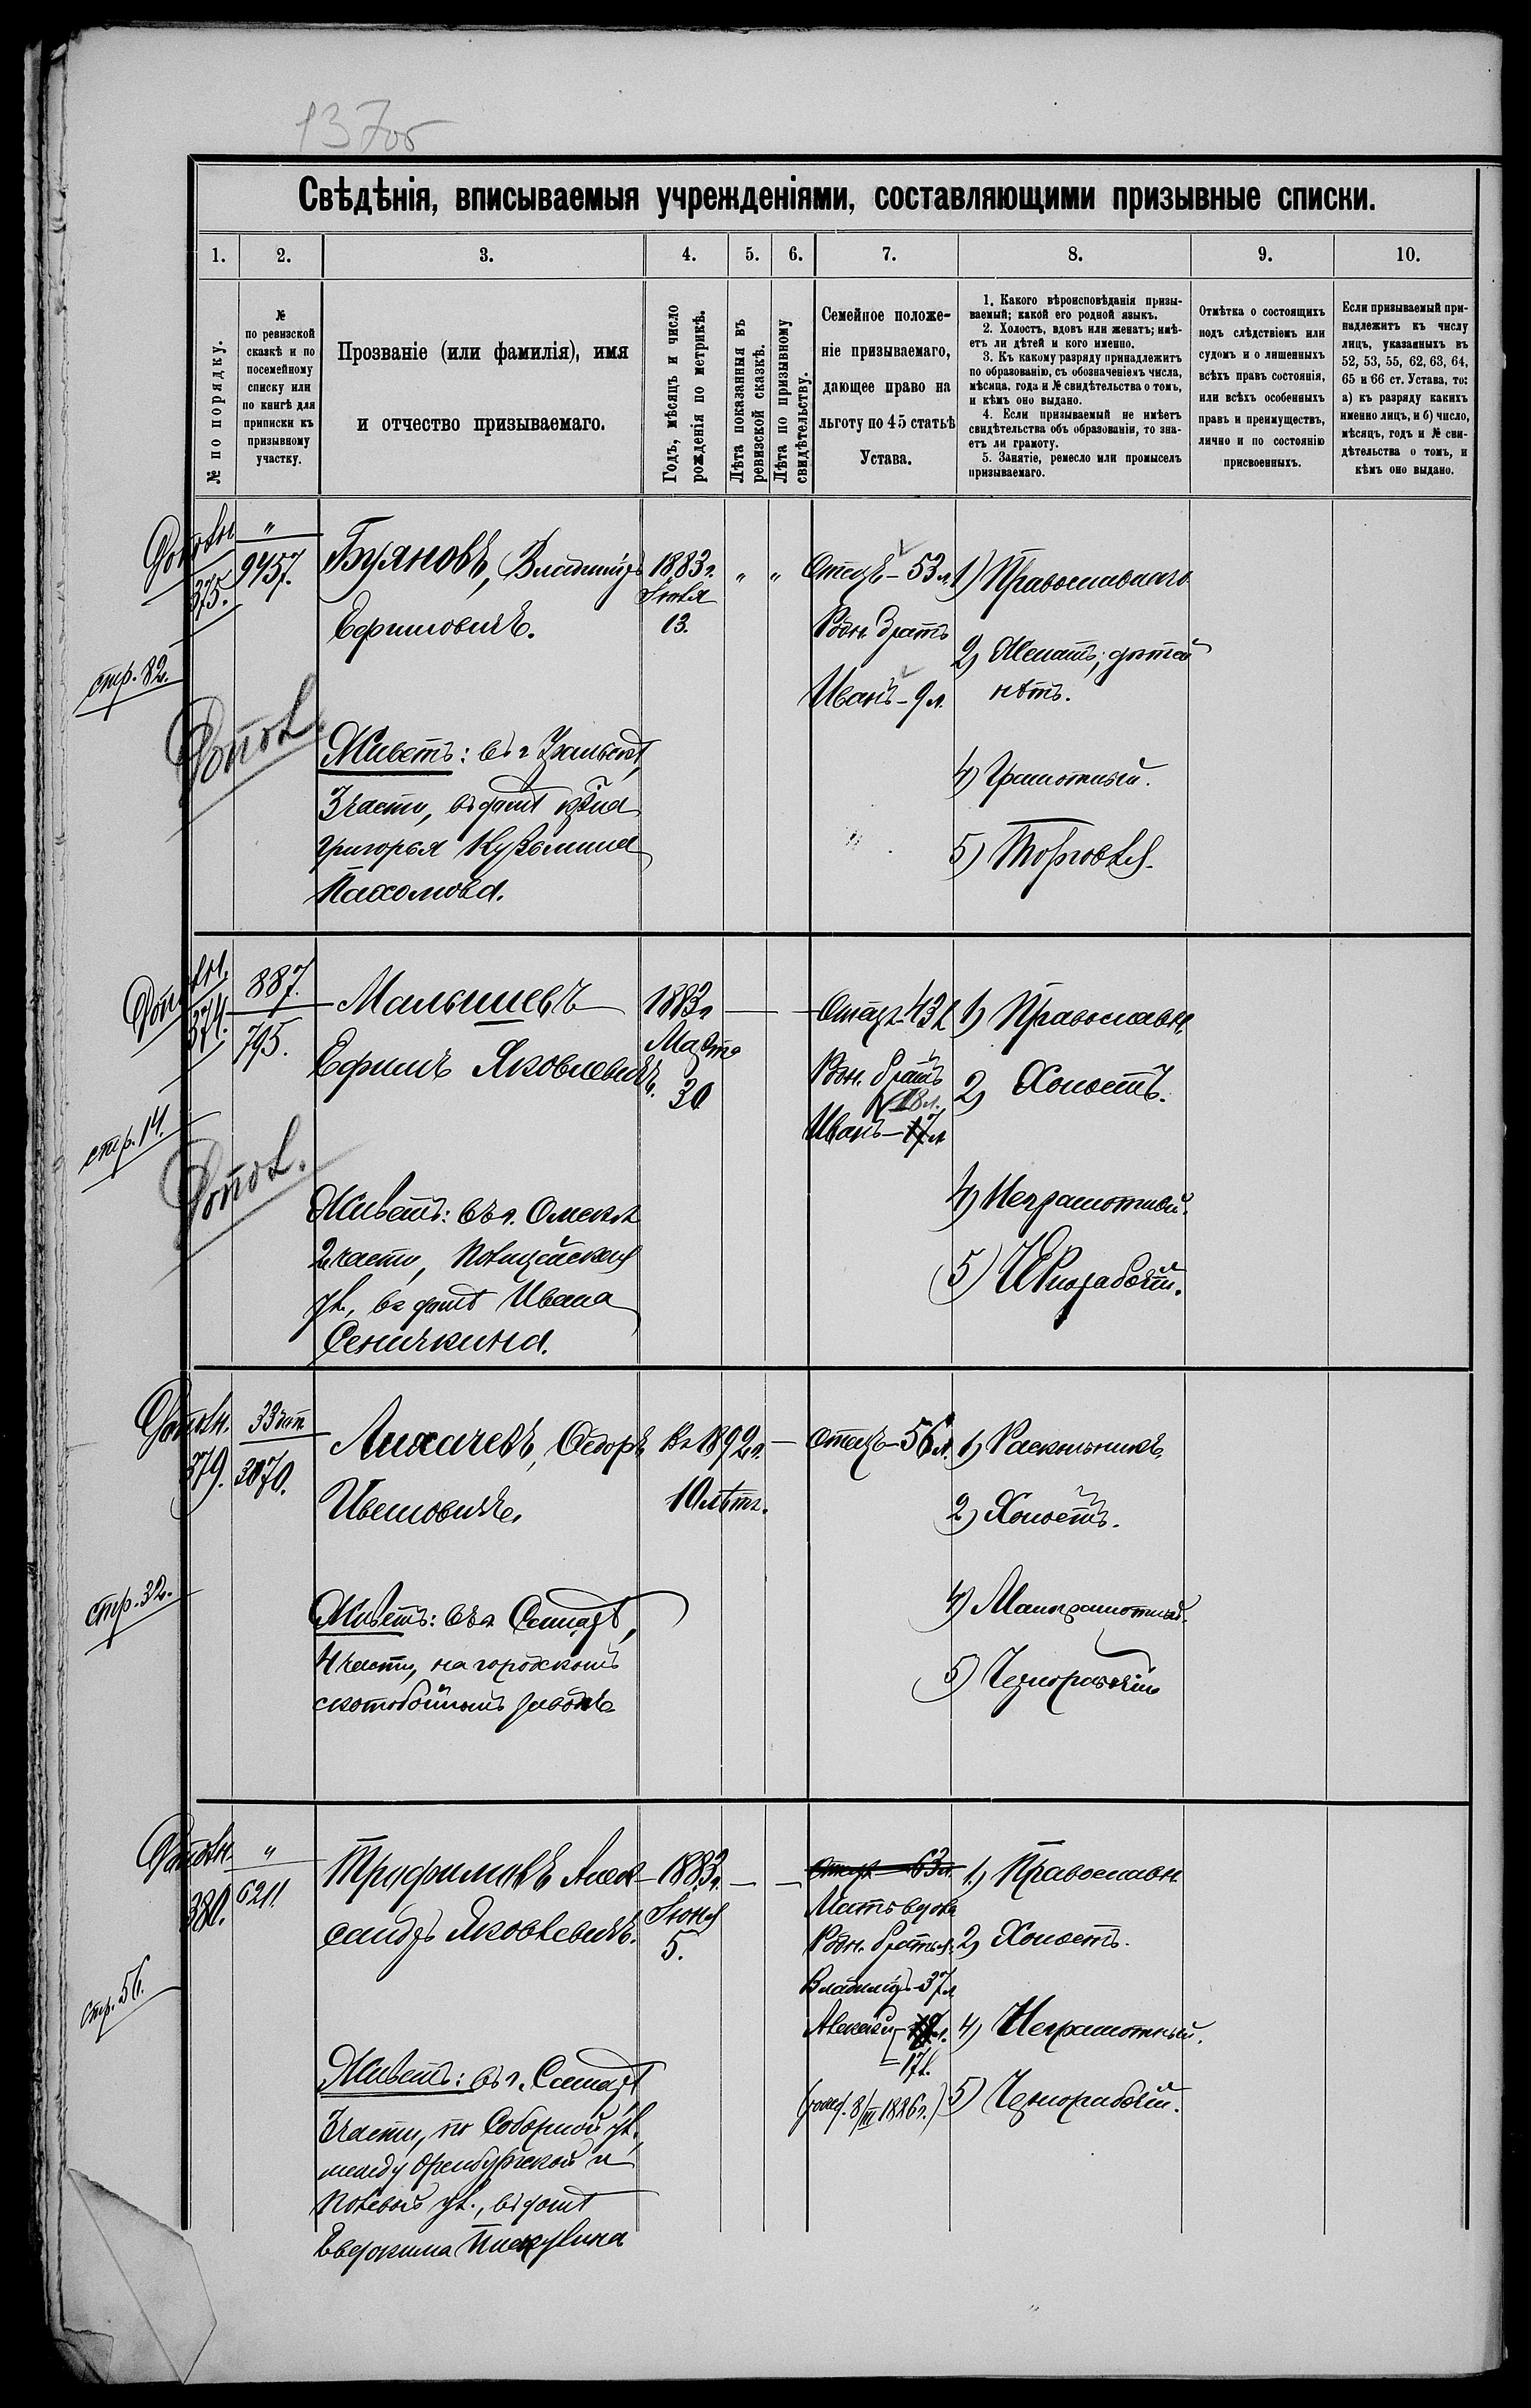 137об
Свѣдѣнія, вписываемыя учрежденіями, составляющими призывные списки.
1. 2. 3. 4. 5. 6. 7. 8. 9. 10.
№ по порядку.
№
по ревизской
сказкѣ и по
посемейному
списку или
по книгѣ для
приписки къ
призывному
участку.
Прозваніе (или фамилія), имя
и отчество призываемаго.
Годъ, мѣсяцъ и число
рожденія по метрикѣ.
Лѣта показанныя въ
ревизской сказкѣ.
Лѣта по призывному
свидѣтельству.
Семейное положе-
ніе призываемаго,
дающее право на
льготу по 45 статьѣ
Устава.
1. Какого вѣроисповѣданія призы-
ваемый; какой его родной языкъ.
2. Холостъ, вдовъ или женатъ; имѣ-
етъ ли дѣтей и кого именно.
3. Къ какому разряду принадлежитъ
по образованію, съ обозначеніемъ числа,
мѣсяца, года и № свидѣтельства о томъ,
и кѣмъ оно выдано.
4. Если призываемый не имѣетъ
свидѣтельства объ образованіи, то зна-
етъ ли грамоту.
5. Занятіе, ремесло или промыселъ
призываемаго.
Отмѣтка о состоящихъ
подъ слѣдствіемъ или
судомъ и о лишенныхъ
всѣхъ правъ состоянія,
или всѣхъ особенныхъ
правъ и преимуществъ,
лично и по состоянію
присвоенныхъ.
Если призываемый при-
надлежитъ къ числу
лицъ, указанныхъ въ
52, 53, 55, 62, 63, 64,
65 и 66 ст. Устава, то:
а) къ разряду какихъ
именно лицъ, и б) число,
мѣсяцъ, годъ и № сви-
дѣтельства о томъ, и
кѣмъ оно выдано.
Дополн.
375.
стр. 82.
Дополн.
"
9457.
Буяновъ, Владиміръ
Ефимовичъ.
Живетъ: въ г. Уральскѣ,
3 части, въ домѣ
Григорья Кузьмина
Пахомова.
1883 г.
Іюля
13.
" "
Отецъ – 53 л.
Родн. братъ
Иванъ – 9 л.
1) Православнаго
2) Женатъ; дѣтей
нѣтъ.
4) Грамотный.
5) Торговля.
Дополн.
374.
стр. 14.
Дополн.
887.
795.
Малышевъ
Ефимъ Яковлевичъ.
Живетъ: въ г. Омскѣ
2 части, Полицейская
ул., въ домѣ Ивана
Сеничкина.
1883 г.
Марта
30
Отецъ – 43 л.
Родн. братъ
18 л.
Иванъ – 17 л.
1) Православн.
2) Холостъ.
4) Неграмотный.
5) Чернорабочій.
Дополн.
379.
стр. 32.
3070.
Лихачевъ, Ѳедоръ
Ивановичъ.
Живетъ: въ г. Самарѣ,
4 части, на городскомъ
скотобойномъ заводѣ
Въ 1892 г.
10 лѣтъ.
Отецъ – 56 л.
1) Раскольникъ.
2) Холостъ.
4) Малограмотный.
5) Чернорабочій
Дополн.
380.
стр. 56.
"
6211.
Трифимовъ Алек-
сандръ Яковлевичъ.
Живетъ: въ г. Самарѣ
3 части, по Соборной ул.,
между Оренбургской и
Полевой ул., въ домѣ
Евдокима
1883 г.
Іюня
5.
Отецъ – 63 л.
Мать вдова
Родн. братья:
Владиміръ – 37 л.
Алексѣй
= 17 л.
8/III 1886 г.)
1) Православн.
2) Холостъ.
4) Неграмотный.
5) Чернорабочій.